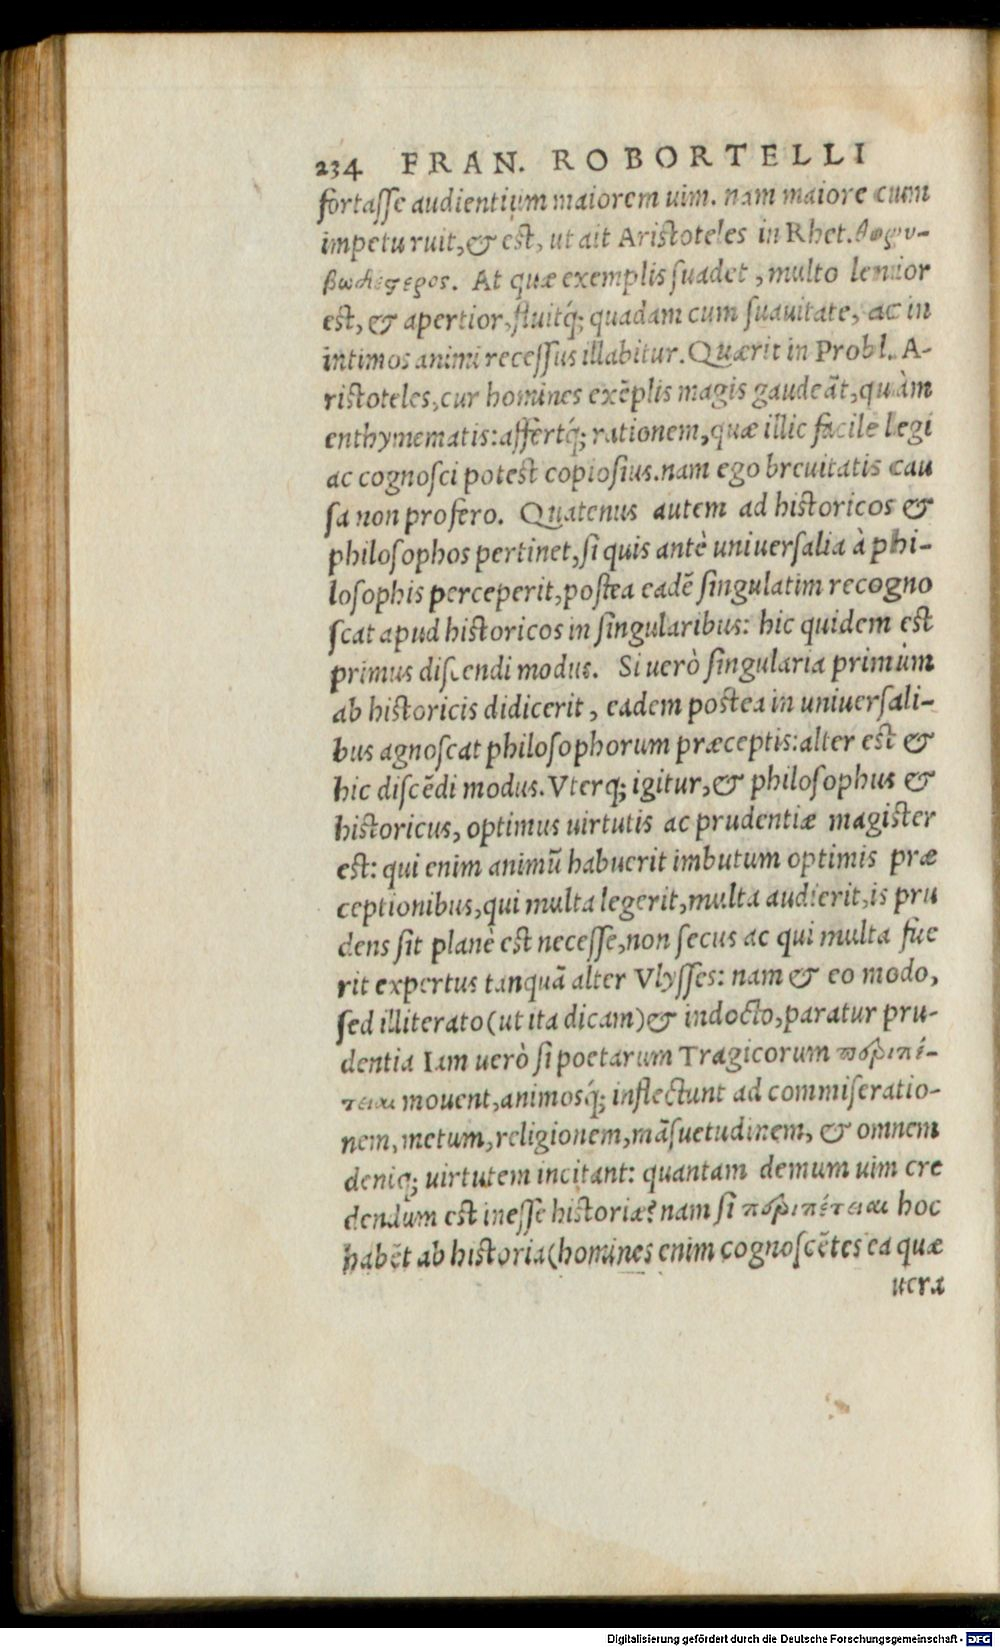 234 FRAN. ROBORTELLI
fortasse audientium maiorem uim. nam maiore cum
impetu ruit, & est, ut ait Aristoteles in Rhet. θορυ-
βωδέςερος. At quæ exemplis suadet, multo lenior
est, & apertior, fluitq́; quadam cum suauitate, ac in
intimos animi recessus illabitur. Quærit in Probl. A-
ristoteles, cur homines exẽplis magis gaudeãt, quàm
enthymematis: affertq́; rationem, quæ illic facile legi
ac cognosci potest copiosius. nam ego breuitatis cau
sa non profero. Quatenus autem ad historicos &
philosophos pertinet, si quis antè uniuersalia à phi-
losophis perceperit, postea eadẽ singulatim recogno
scat apud historicos in singularibus: hic quidem est
primus discendi modus. Si uerò singularia primùm
ab historicis didicerit, eadem postea in uniuersali-
bus agnoscat philosophorum præceptis: alter est &
hic discẽdi modus. Vterq; igitur, & philosophus &
historicus, optimus uirtutis ac prudentiæ magister
est: qui enim animũ habuerit imbutum optimis præ
ceptionibus, qui multa legerit, multa audierit, is pru
dens sit planè est necesse, non secus ac qui multa fue
rit expertus tanquã alter Vlysses: nam & eo modo,
sed illiterato (ut ita dicam) & indocto, paratur pru-
dentia Iam uerò si poetarum Tragicorum περιπέ-
τειαι mouent, animosq́; inflectunt ad commiseratio-
nem, metum, religionem, mãsuetudinem, & omnem
deniq; uirtutem incitant: quantam demum uim cre
dendum est inesse historiæ? nam si περιπέτειαι hoc
habẽt ab historia (homines enim cognoscẽtes ea quæ
uera
Digitalisierung gefördert durch die Deutsche Forschungsgemeinschaft - DFG